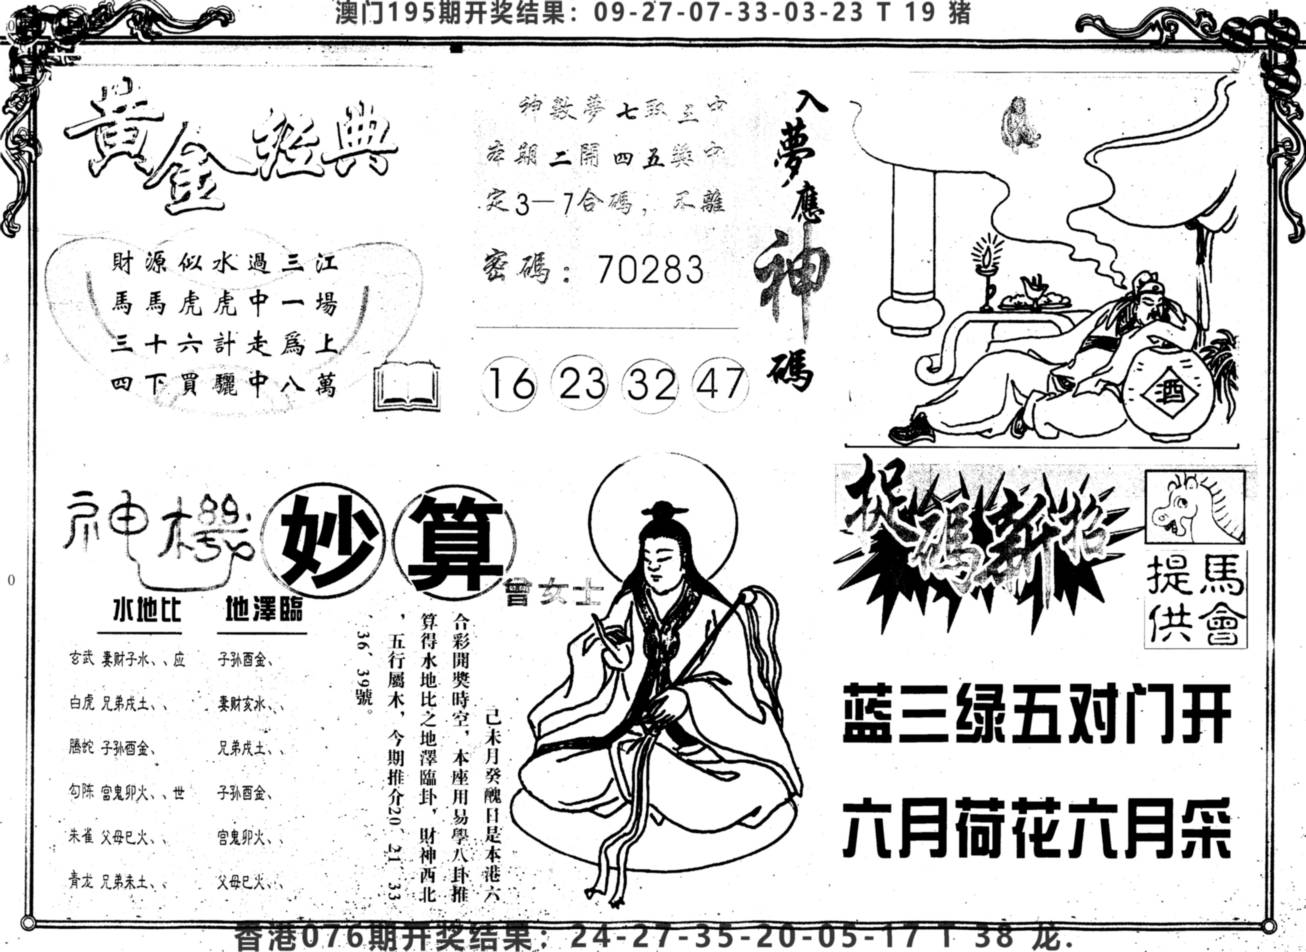 澳门195期开奖结果：09-27-07-33-03-23 T 19 猪
黄金經典
財源似水過三江
馬馬虎虎中一場
三十六計走爲上
四下買驪中八萬
神數夢七取三中
本期二開四五獎中
定3一7合碼，不離
密碼：70283
16 23 32 47
入夢應神碼
酒
神機妙算
曾女士
水地比 地澤臨
玄武 妻財子水、、应 子孙酉金、
白虎 兄弟戌土、、 妻财亥水、、
腾蛇 子孙酉金、 兄弟戌土、、
勾陈 官鬼卯火、、世 子孙酉金、
朱雀 父母巳火、、 官鬼卯火、、
青龙 兄弟未土、、 父母巳火、、
己未月癸醜日是本港六
合彩開獎時空，本座用易學八卦推
算得水地比之地澤臨卦，財神西北
，五行屬木，今期推介20、21、33
、36、39號。
捉碼新招
馬會提供
蓝三绿五对门开
六月荷花六月采
香港076期开奖结果：24-27-35-20-05-17 T 38 龙.